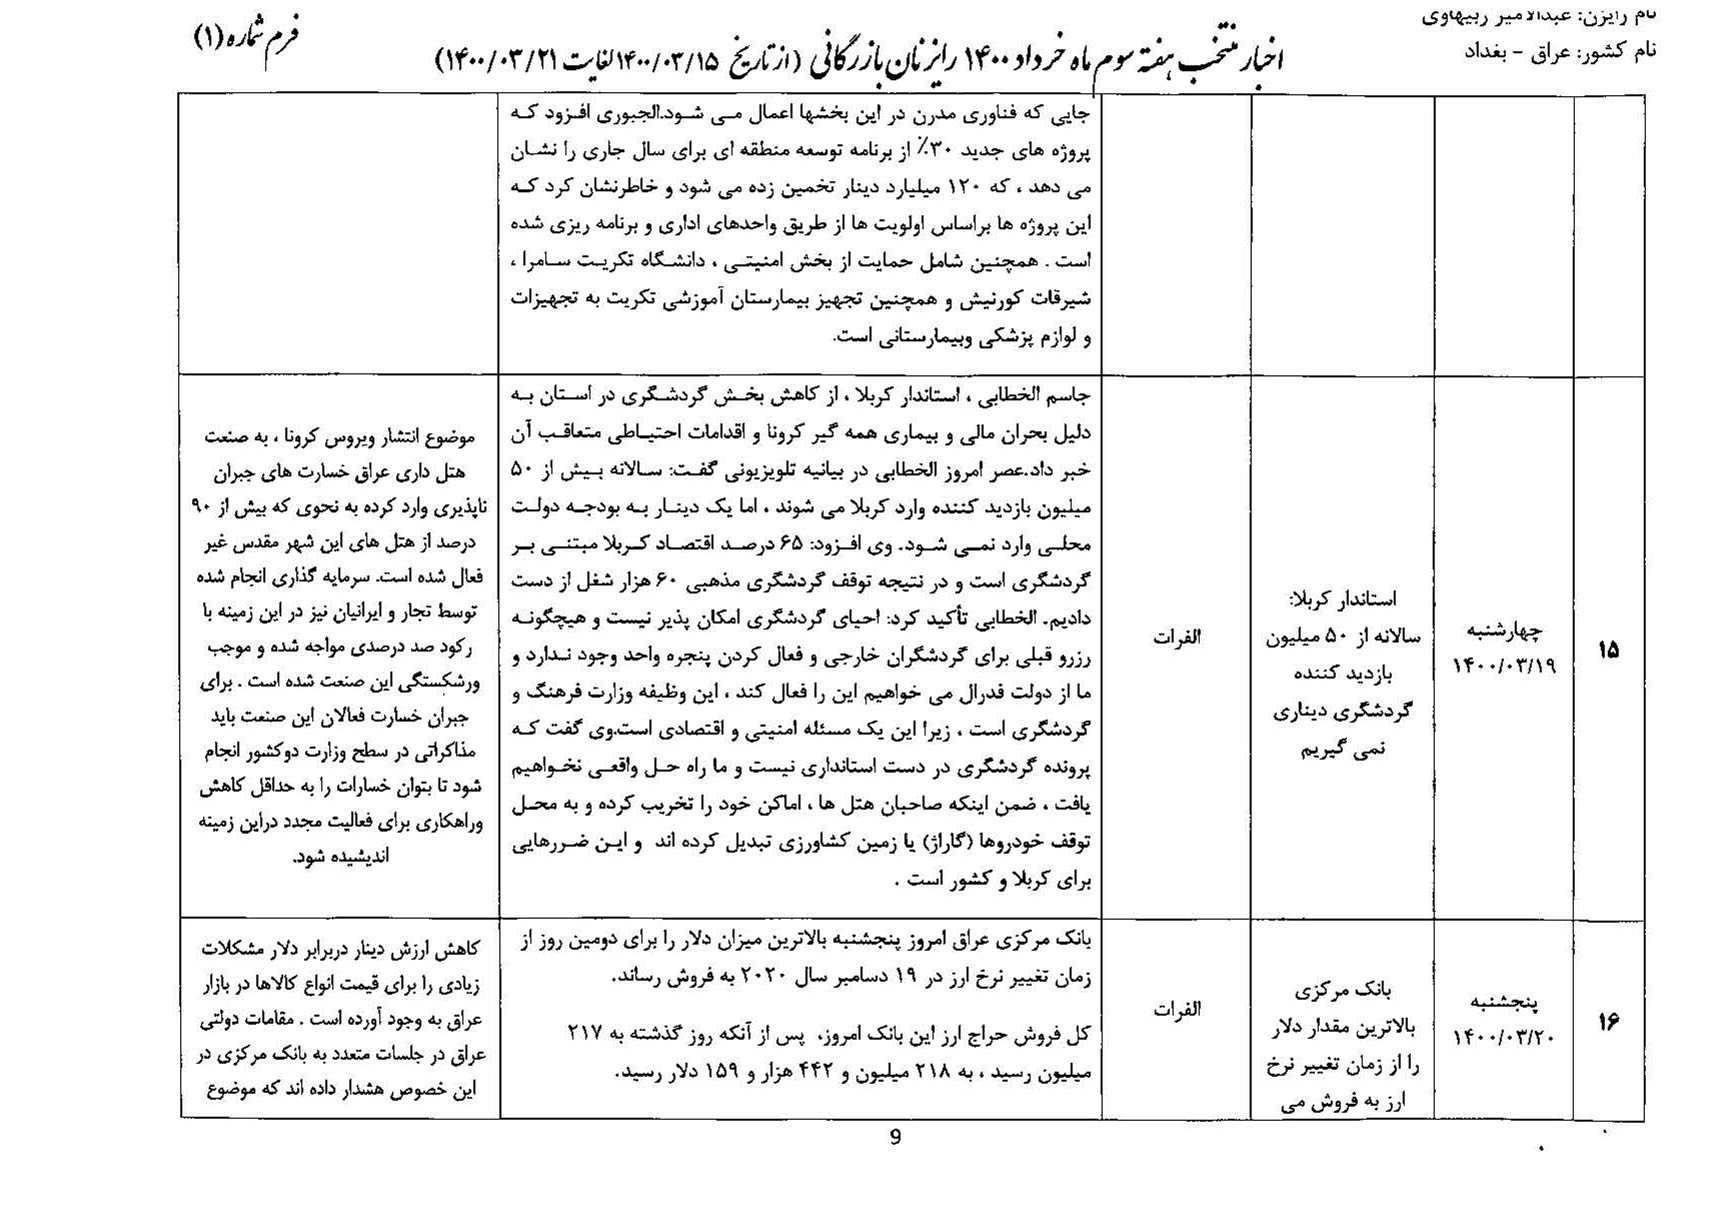 نام رایزن: عبدالامیر ربیهاوی
نام کشور: عراق - بغداد
اخبار منتخب هفته سوم ماه خرداد ۱۴۰۰ رایزنان بازرگانی (از تاریخ ۱۴۰۰/۰۳/۱۵ لغایت ۱۴۰۰/۰۳/۲۱)
فرم شماره (۱)
جایی که فناوری مدرن در این بخشها اعمال می شود.الجبوری افزود که
پروژه های جدید ۳۰٪ از برنامه توسعه منطقه ای برای سال جاری را نشان
می دهد ، که ۱۲۰ میلیارد دینار تخمین زده می شود و خاطرنشان کرد که
این پروژه ها براساس اولویت ها از طریق واحدهای اداری و برنامه ریزی شده
است . همچنین شامل حمایت از بخش امنیتی ، دانشگاه تکریت سامرا ،
شیرقات کورنیش و همچنین تجهیز بیمارستان آموزشی تکریت به تجهیزات
و لوازم پزشکی وبیمارستانی است.
۱۵
چهارشنبه
۱۴۰۰/۰۳/۱۹
استاندار کربلا:
سالانه از ۵۰ میلیون
بازدید کننده
گردشگری دیناری
نمی گیریم
الفرات
جاسم الخطابی ، استاندار کربلا ، از کاهش بخش گردشگری در استان به
دلیل بحران مالی و بیماری همه گیر کرونا و اقدامات احتیاطی متعاقب آن
خبر داد.عصر امروز الخطابی در بیانیه تلویزیونی گفت: سالانه بیش از ۵۰
میلیون بازدید کننده وارد کربلا می شوند ، اما یک دینار به بودجه دولت
محلی وارد نمی شود. وی افزود: ۶۵ درصد اقتصاد کربلا مبتنی بر
گردشگری است و در نتیجه توقف گردشگری مذهبی ۶۰ هزار شغل از دست
دادیم. الخطابی تأکید کرد: احیای گردشگری امکان پذیر نیست و هیچگونه
رزرو قبلی برای گردشگران خارجی و فعال کردن پنجره واحد وجود ندارد و
ما از دولت فدرال می خواهیم این را فعال کند ، این وظیفه وزارت فرهنگ و
گردشگری است ، زیرا این یک مسئله امنیتی و اقتصادی است.وی گفت که
پرونده گردشگری در دست استانداری نیست و ما راه حل واقعی نخواهیم
یافت ، ضمن اینکه صاحبان هتل ها ، اماکن خود را تخریب کرده و به محل
توقف خودروها (گاراژ) یا زمین کشاورزی تبدیل کرده اند و این ضررهایی
برای کربلا و کشور است .
موضوع انتشار ویروس کرونا ، به صنعت
هتل داری عراق خسارت های جبران
ناپذیری وارد کرده به نحوی که بیش از ۹۰
درصد از هتل های این شهر مقدس غیر
فعال شده است. سرمایه گذاری انجام شده
توسط تجار و ایرانیان نیز در این زمینه با
رکود صد درصدی مواجه شده و موجب
ورشکستگی این صنعت شده است . برای
جبران خسارت فعالان این صنعت باید
مذاکراتی در سطح وزارت دوکشور انجام
شود تا بتوان خسارات را به حداقل کاهش
وراهکاری برای فعالیت مجدد دراین زمینه
اندیشیده شود.
۱۶
پنجشنبه
۱۴۰۰/۰۳/۲۰
بانک مرکزی
بالاترین مقدار دلار
را از زمان تغییر نرخ
ارز به فروش می
الفرات
بانک مرکزی عراق امروز پنجشنبه بالاترین میزان دلار را برای دومین روز از
زمان تغییر نرخ ارز در ۱۹ دسامبر سال ۲۰۲۰ به فروش رساند.
کل فروش حراج ارز این بانک امروز، پس از آنکه روز گذشته به ۲۱۷
میلیون رسید ، به ۲۱۸ میلیون و ۴۴۲ هزار و ۱۵۹ دلار رسید.
کاهش ارزش دینار دربرابر دلار مشکلات
زیادی را برای قیمت انواع کالاها در بازار
عراق به وجود آورده است . مقامات دولتی
عراق در جلسات متعدد به بانک مرکزی در
این خصوص هشدار داده اند که موضوع
9